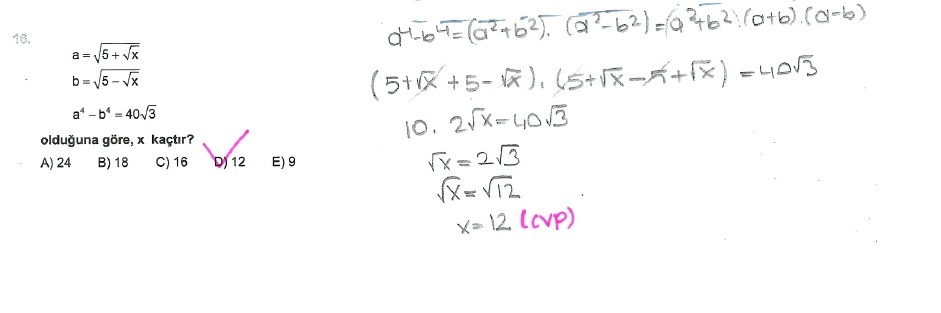 16.
a = √(5 + √x)
b = √(5 − √x)
a⁴ − b⁴ = 40√3
olduğuna göre, x kaçtır?
A) 24 B) 18 C) 16 D) 12 E) 9
a⁴-b⁴=(a²+b²).(a²-b²)=(a²+b²).(a+b).(a-b)
(5+√x+5-√x).(5+√x-5+√x)=40√3
10.2√x=40√3
√x=2√3
√x=√12
x=12 (cvp)